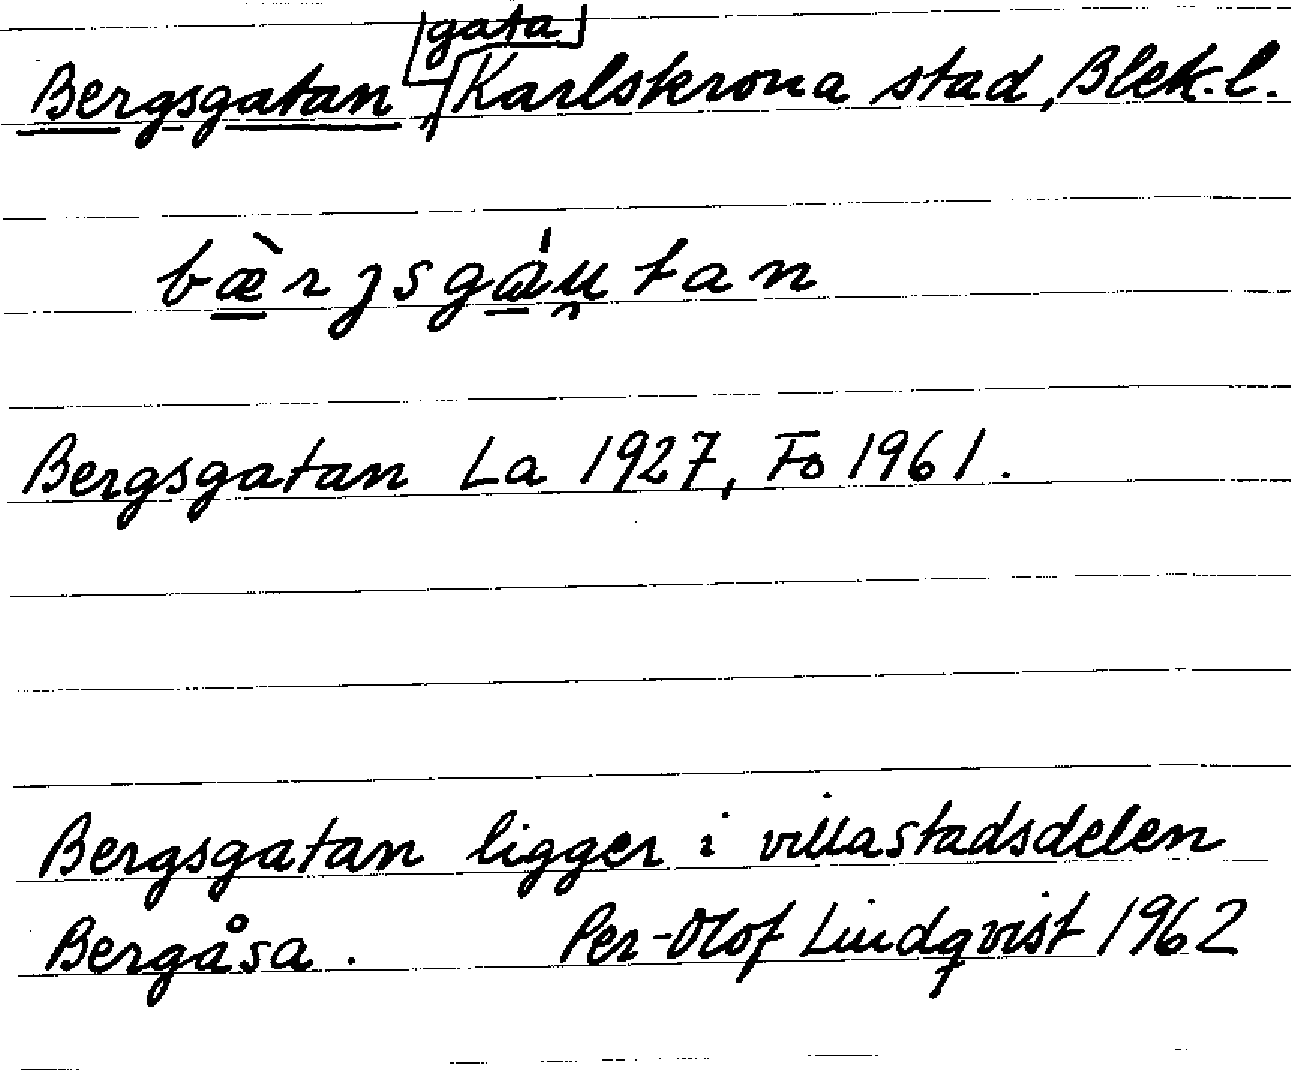 gata
Bergsgatan, Karlskrona stad, Blek.l.
bæ̀rjsgáu̯tan
Bergsgatan La 1927, Fo 1961.
Bergsgatan ligger i villastadsdelen
Bergåsa. Per-Olof Lindqvist 1962